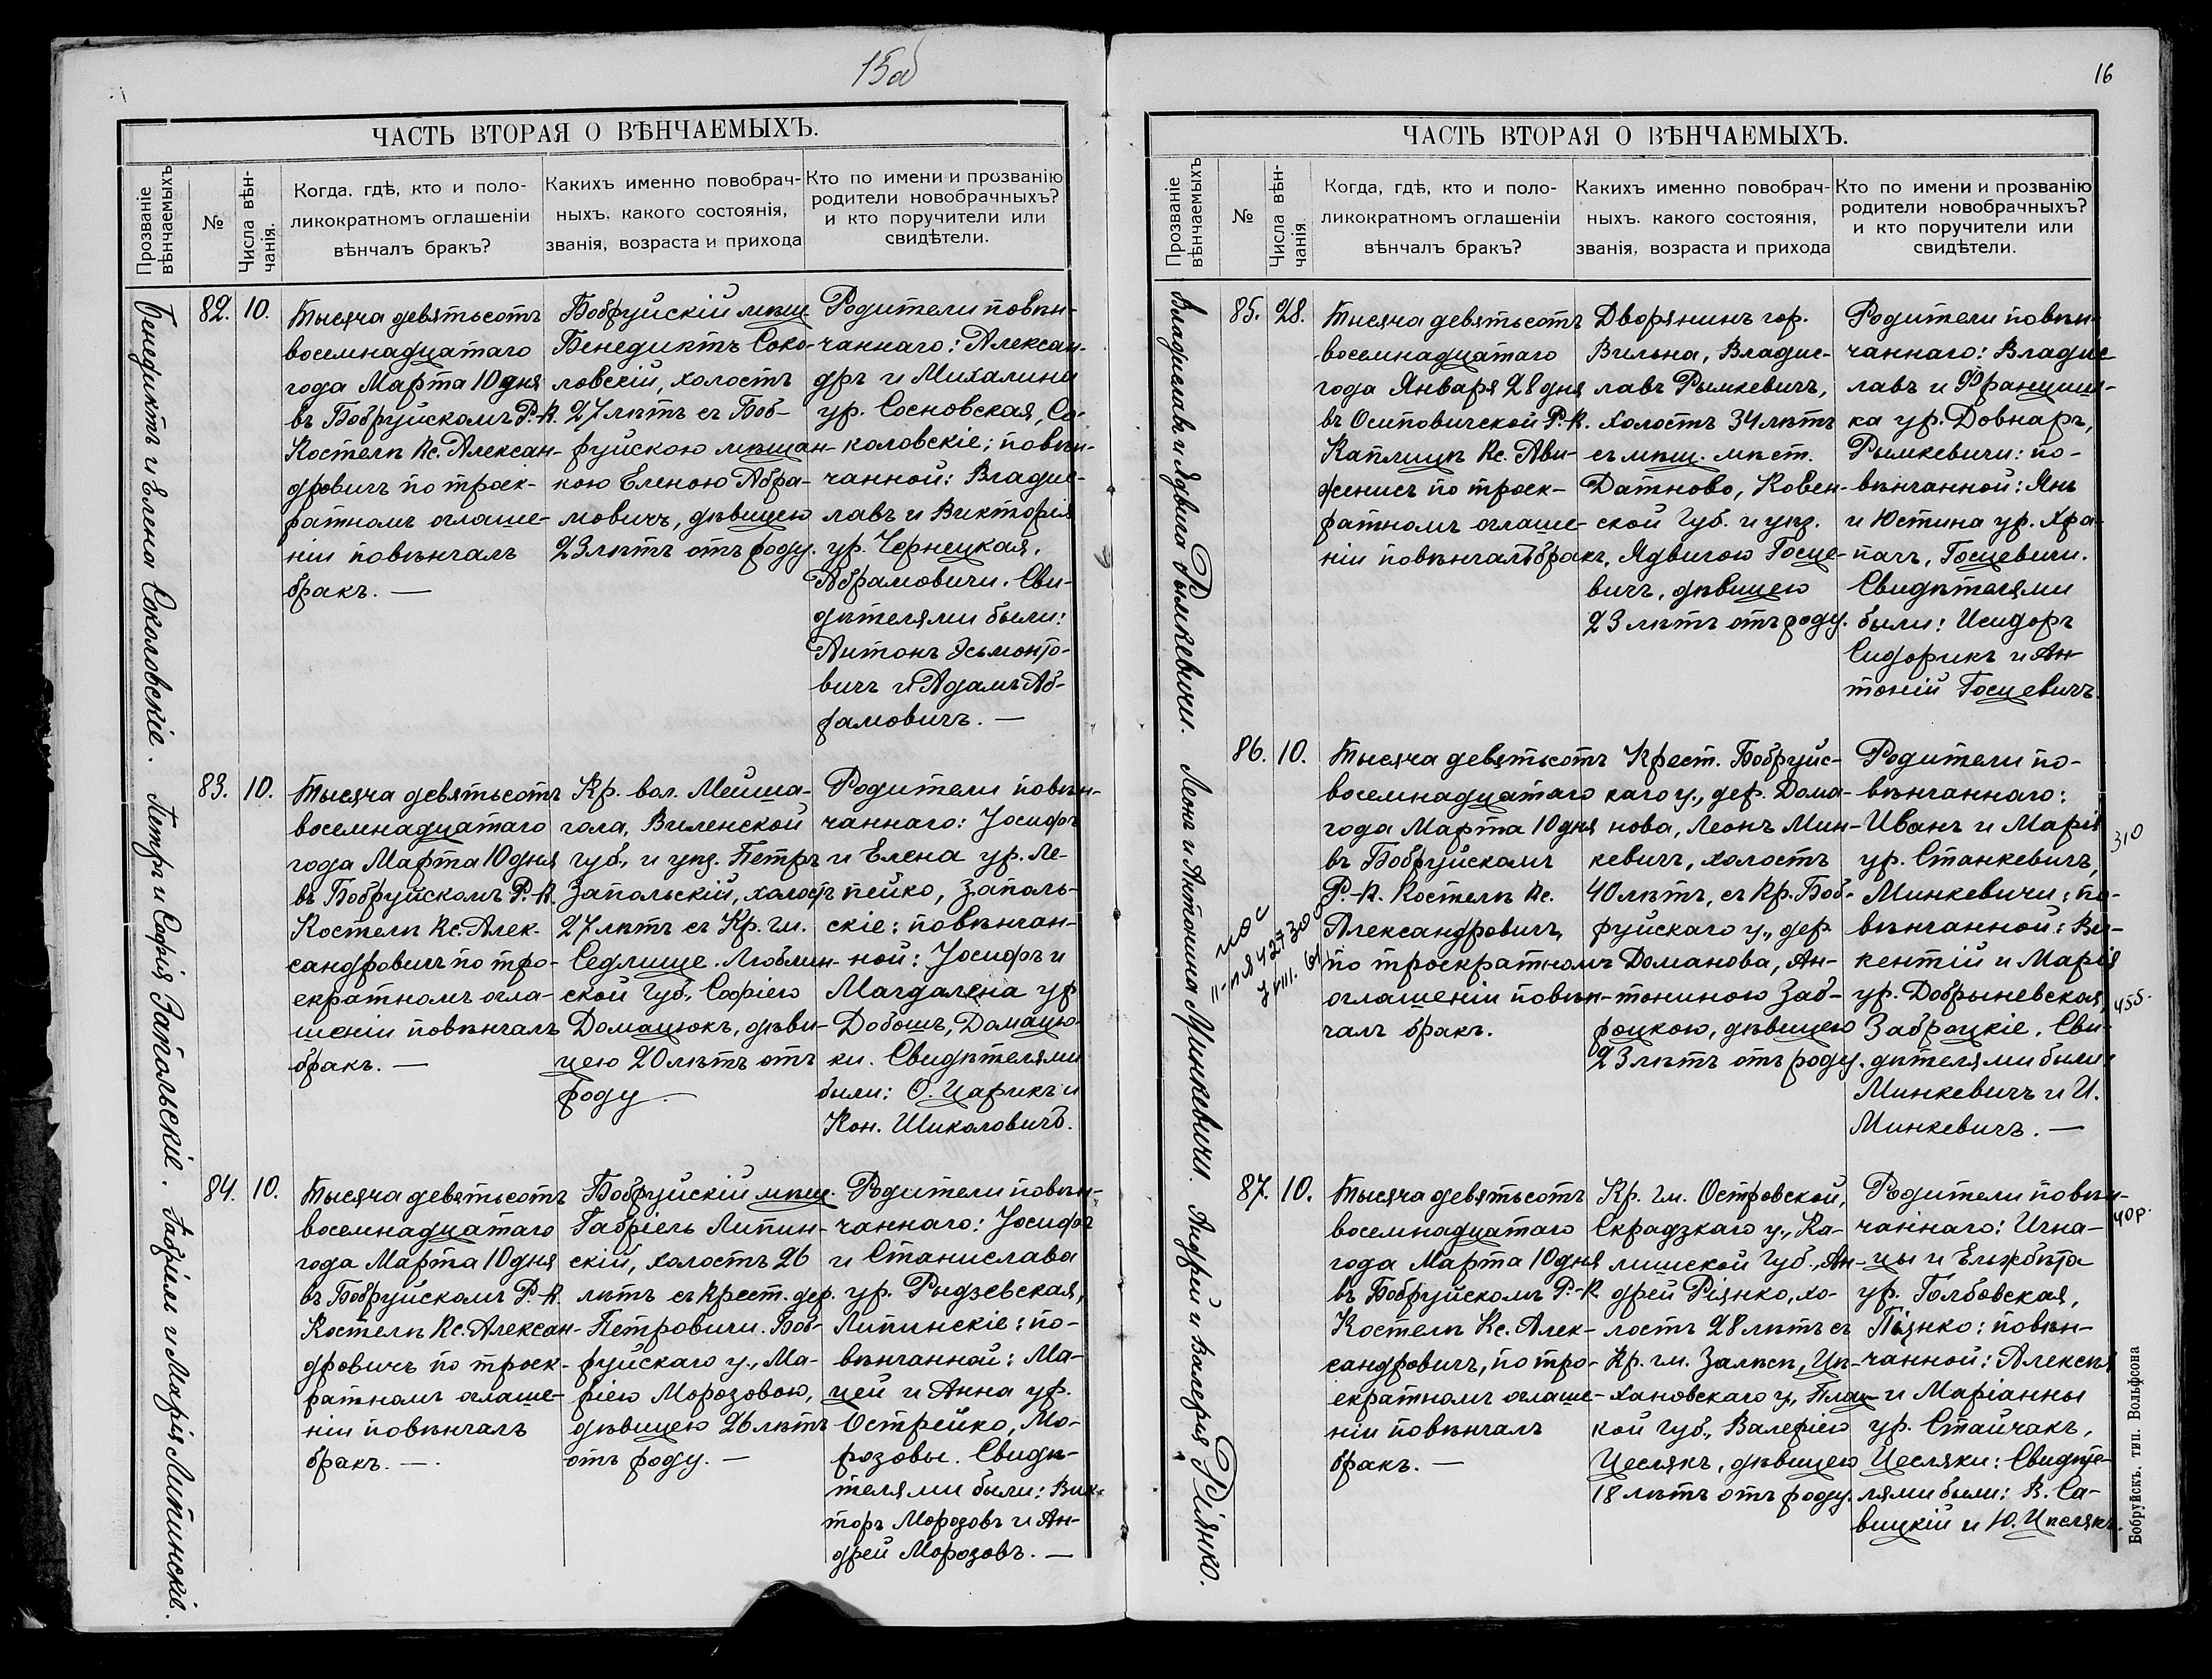 15об
ЧАСТЬ ВТОРАЯ О ВѢНЧАЕМЫХЪ.
Прозваніе
вѣнчаемыхъ
№
Числа вѣн-
чанія.
Когда, гдѣ, кто и поло-
ликократномъ оглашеніи
вѣнчалъ бракъ?
Какихъ именно повобрач-
ныхъ, какого состоянія,
званія, возраста и прихода
Кто по имени и прозванію
родители новобрачныхъ?
и кто поручители или
свидѣтели.
Бенедиктъ и Елена Соколовскіе.
82. 10.
Тысяча девятьсотъ
восемнадцатаго
года Марта 10 дня
въ Бобруйскомъ Р.-К.
Костелѣ Кс. Алексан-
дровичъ по троек-
ратномъ оглаше-
ніи повѣнчалъ
бракъ. —
Бобруйскій мѣщ.
Бенедиктъ Соко-
ловскій, холостъ
27 лѣтъ съ Боб-
руйскою мѣщан-
кою Еленою Абра-
мовичъ, дѣвицею
23 лѣтъ отъ роду.
Родители повѣн-
чаннаго: Алексан-
дръ и Михалина
ур. Сосновская, Со-
коловскіе; повѣн-
чанной: Владис-
лавъ и Викторія
ур. Чернецкая,
Абрамовичи. Сви-
дѣтелями были:
Антонъ Эсьмонто-
вичъ и Адамъ Аб-
рамовичъ. —
Петръ и Софія Запольскіе.
83. 10.
Тысяча девятьсотъ
восемнадцатаго
года Марта 10 дня
въ Бобруйскомъ Р.-К.
Костелѣ Кс. Алек-
сандровичъ по тро-
екратномъ огла-
шеніи повѣнчалъ
бракъ. —
Кр. вол. Мейша-
гола, Виленской
губ., и уѣз. Петръ
Запольскій, холостъ
27 лѣтъ съ Кр. гм.
Седлище. Люблин-
ской Губ., Софіею
Домацюкъ, дѣви-
цею 20 лѣтъ отъ
роду. —
Родители повѣн-
чаннаго: Іосифъ
и Елена ур. Ле-
пейко, Заполь-
скіе: повѣнчан-
ной: Іосифъ и
Магдалена ур
Добошъ, Домацю-
ки. Свидѣтелями
были: О. Царикъ и
Кон. Шиколовичъ.
Габріель и Марія Липинскіе.
84. 10.
Тысяча девятьсотъ
восемнадцатаго
года Марта 10 дня
въ Бобруйскомъ Р.-К.
Костелѣ Кс. Алексан-
дровичъ по троек-
ратномъ оглаше-
ніи повѣнчалъ
бракъ. —
Бобруйскій мѣщ.
Габріель Липин-
скій, холостъ 26
лѣтъ съ Крест. дер.
Петровичи. Боб-
руйскаго у., Ма-
ріею Морозовою,
дѣвицею 26 лѣтъ
отъ роду. —
Родители повѣн-
чаннаго: Іосифъ
и Станислава
ур. Рыдзевская,
Липинскіе: по-
вѣнчанной: Ма-
цей и Анна ур.
Острейко, Мо-
розовы. Свидѣ-
телями были: Вик-
торъ Морозовъ и Ан-
дрей Морозовъ. —
16
ЧАСТЬ ВТОРАЯ О ВѢНЧАЕМЫХЪ.
Прозваніе
вѣнчаемыхъ
№
Числа вѣн-
чанія
Когда, гдѣ, кто и поло-
ликократномъ оглашеніи
вѣнчалъ бракъ?
Какихъ именно повобрач-
ныхъ. какого состоянія,
званія, возраста и прихода
Кто по имени и прозванію
родители новобрачныхъ?
и кто поручители или
свидѣтели.
Владиславъ и Ядвига Рымкевичи.
85. 28.
Тысяча девятьсотъ
восемнадцатаго
года Января 28 дня
въ Осиповичской Р.-К.
Каплицѣ Кс. Ави-
женисъ по троек-
ратномъ оглаше-
ніи повѣнчалъ бракъ.
Дворянинъ гор.
Вильна, Владис-
лавъ Рымкевичъ,
холостъ 34 лѣтъ
съ мѣщ. мѣст.
Датново, Ковен-
ской Губ. и уѣз.
Ядвигою Госце-
вичъ, дѣвицею
23 лѣтъ отъ роду.
Родители повѣн-
чаннаго: Владис-
лавъ и Франциш-
ка ур. Довнаръ,
Рымкевичи: по-
вѣнчанной: Янъ
и Юстина ур. Хра-
пачъ, Госцевичи.
Свидѣтелями
были: Исидоръ
Сидорикъ и Ан-
тоній Госцевичъ.
Леонъ и Антонина Минкевичи.
86. 10.
Тысяча девятьсотъ
восемнадцатаго
года Марта 10 дня
въ Бобруйскомъ
Р.-К. Костелѣ Кс.
Александровичъ,
по троекратномъ
оглашеніи повѣн-
чалъ бракъ.
Крест. Бобруйс-
каго у., дер. Дома-
нова, Леонъ Мин-
кевичъ, холостъ
40 лѣтъ, съ Кр. Боб-
руйскаго у., дер.
Доманова, Ан-
тониною Заб-
роцкою, дѣвицею
23 лѣтъ отъ роду.
Родители по-
вѣнчаннаго:
Иванъ и Марія
ур. Станкевичъ,
Минкевичи: по-
вѣнчанной: Ви-
кентій и Марія
ур. Добрыневская,
Заброцкіе. Сви-
дѣтелями были:
Минкевичъ и И.
Минкевичъ. —
310
455.
Андрей и Валерія Ріянко.
87. 10.
Тысяча девятьсотъ
восемнадцатаго
года Марта 10 дня
въ Бобруйскомъ Р.-К
Костелѣ Кс. Алек-
сандровичъ, по тро-
екратномъ оглаше-
ніи повѣнчалъ
бракъ. —
Кр. гм. Островской,
Скрадзкаго у., Ка-
лишской Губ., Ан-
дрей Ріянко, хо-
лостъ 28 лѣтъ съ
Кр. гм. Залѣсѣ, Цѣ-
хановскаго у., Плац-
кой Губ., Валеріею
Цеслякъ, дѣвицею
18 лѣтъ отъ роду.
Родители повѣн-
чаннаго: Игна-
цы и Ельжбѣта
ур. Голбовская,
Піянко: повѣн-
чанной: Алексѣй
и Маріанны
ур. Стайчакъ,
Цесляки: Свидѣте-
лями были: В. Са-
вицкій и Ю. Цеслякъ.
40р.
Бобруйскъ. тип. Вольфсона